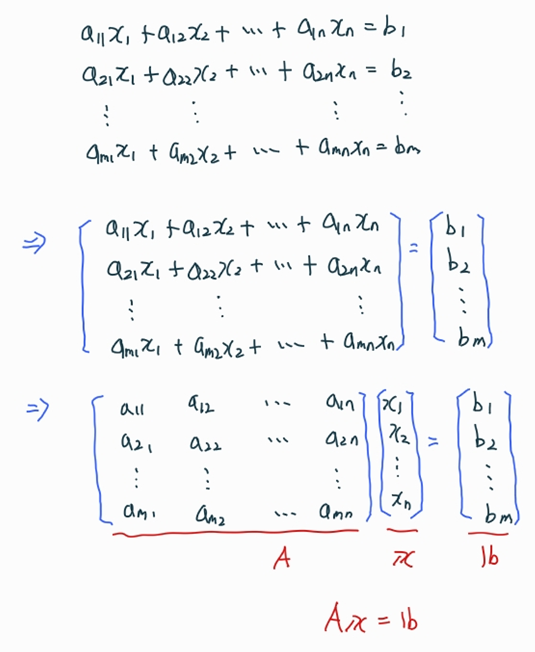 a₁₁x₁ + a₁₂x₂ + ⋯ + a₁ₙxₙ = b₁
a₂₁x₁ + a₂₂x₂ + ⋯ + a₂ₙxₙ = b₂
⋮ ⋮ ⋮ ⋮
aₘ₁x₁ + aₘ₂x₂ + ⋯ + aₘₙxₙ = bₘ
⇒ [ a₁₁x₁ + a₁₂x₂ + ⋯ + a₁ₙxₙ ] = [ b₁ ]
[ a₂₁x₁ + a₂₂x₂ + ⋯ + a₂ₙxₙ ] [ b₂ ]
[ ⋮ ⋮ ⋮ ] [ ⋮ ]
[ aₘ₁x₁ + aₘ₂x₂ + ⋯ + aₘₙxₙ ] [ bₘ ]
⇒ [ a₁₁ a₁₂ ⋯ a₁ₙ ] [ x₁ ] = [ b₁ ]
[ a₂₁ a₂₂ ⋯ a₂ₙ ] [ x₂ ] [ b₂ ]
[ ⋮ ⋮ ⋮ ] [ ⋮ ] [ ⋮ ]
[ aₘ₁ aₘ₂ ⋯ aₘₙ ] [ xₙ ] [ bₘ ]
A 𝕩 𝕓
A𝕩 = 𝕓